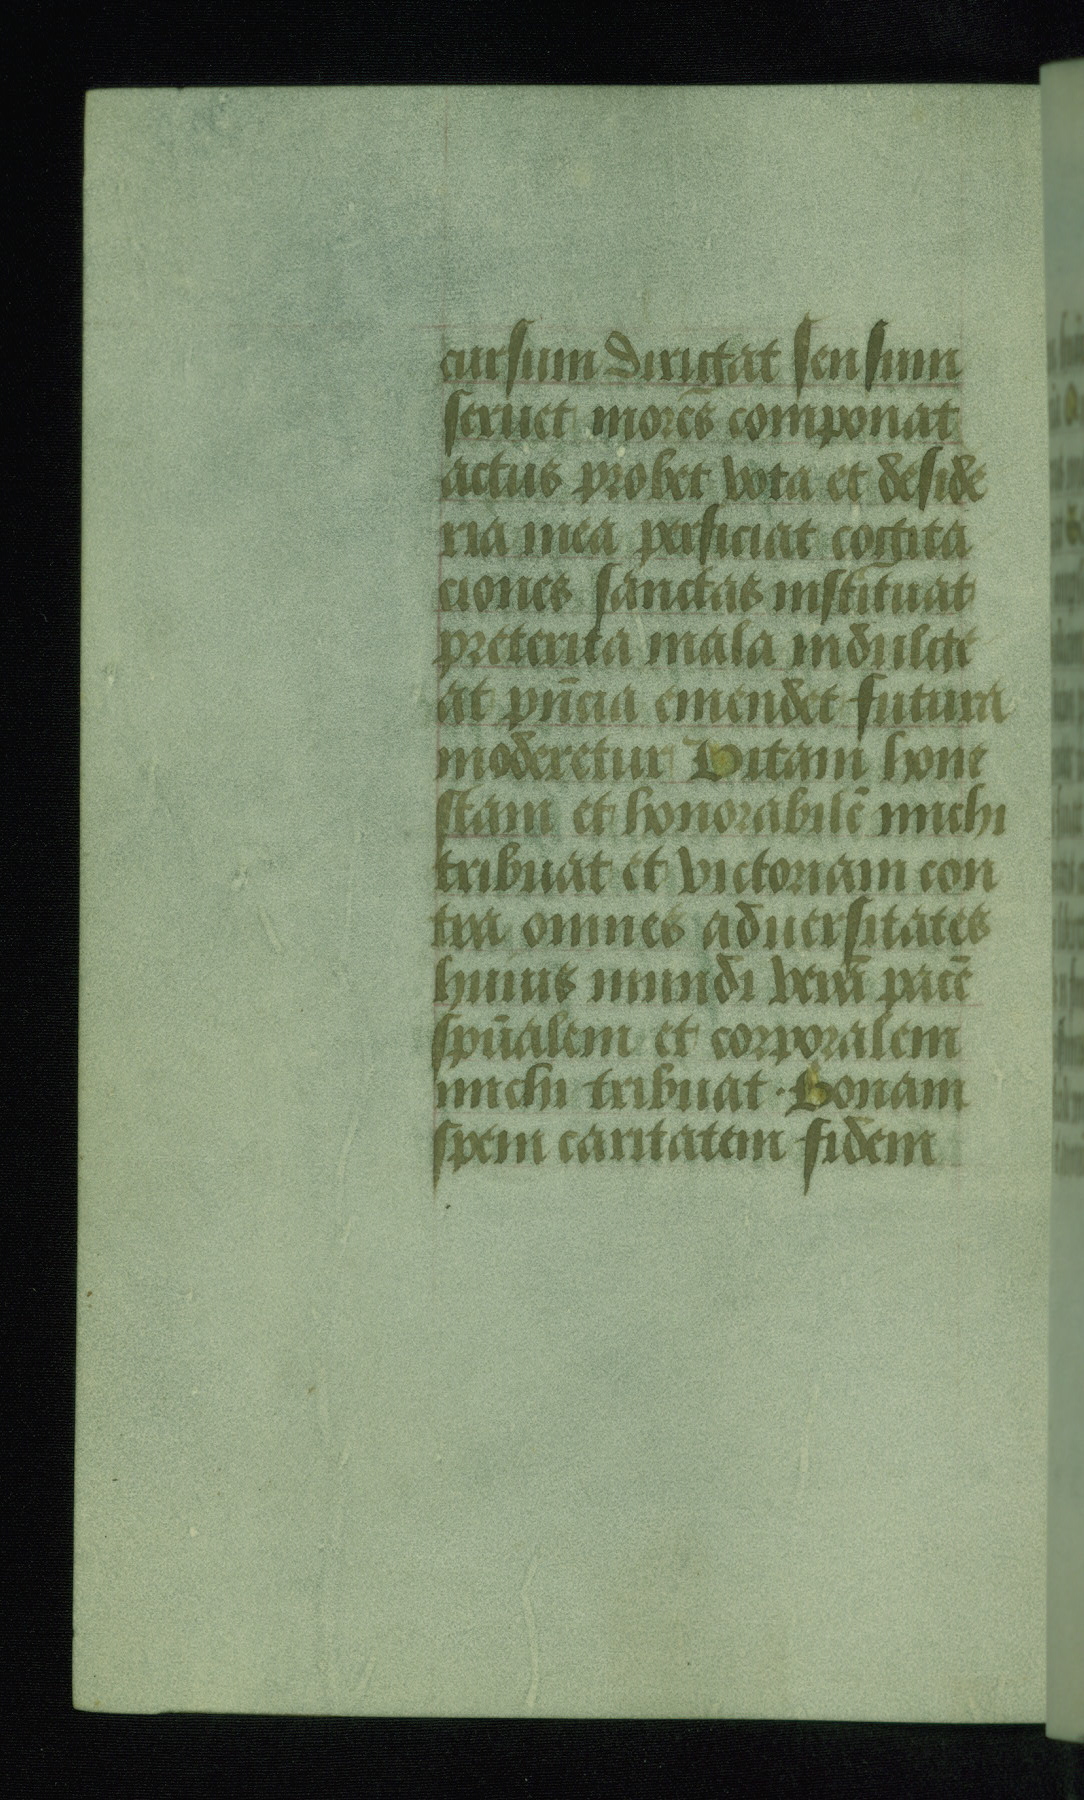 cursum dirigat sensum
seruet mores componat
actus probet vota et deside
ria mea perficiat cogita
ciones sanctas instituat
preterita mala indulge
at pn̄cia emendet futura
moderetur Vitam hone
stam et honorabilē michi
tribuat et victoriam con
tra omnes aduersitates
huius mundi verā pacē
spūalem et corporalem
michi tribuat · Bonam
spem caritatem fidem